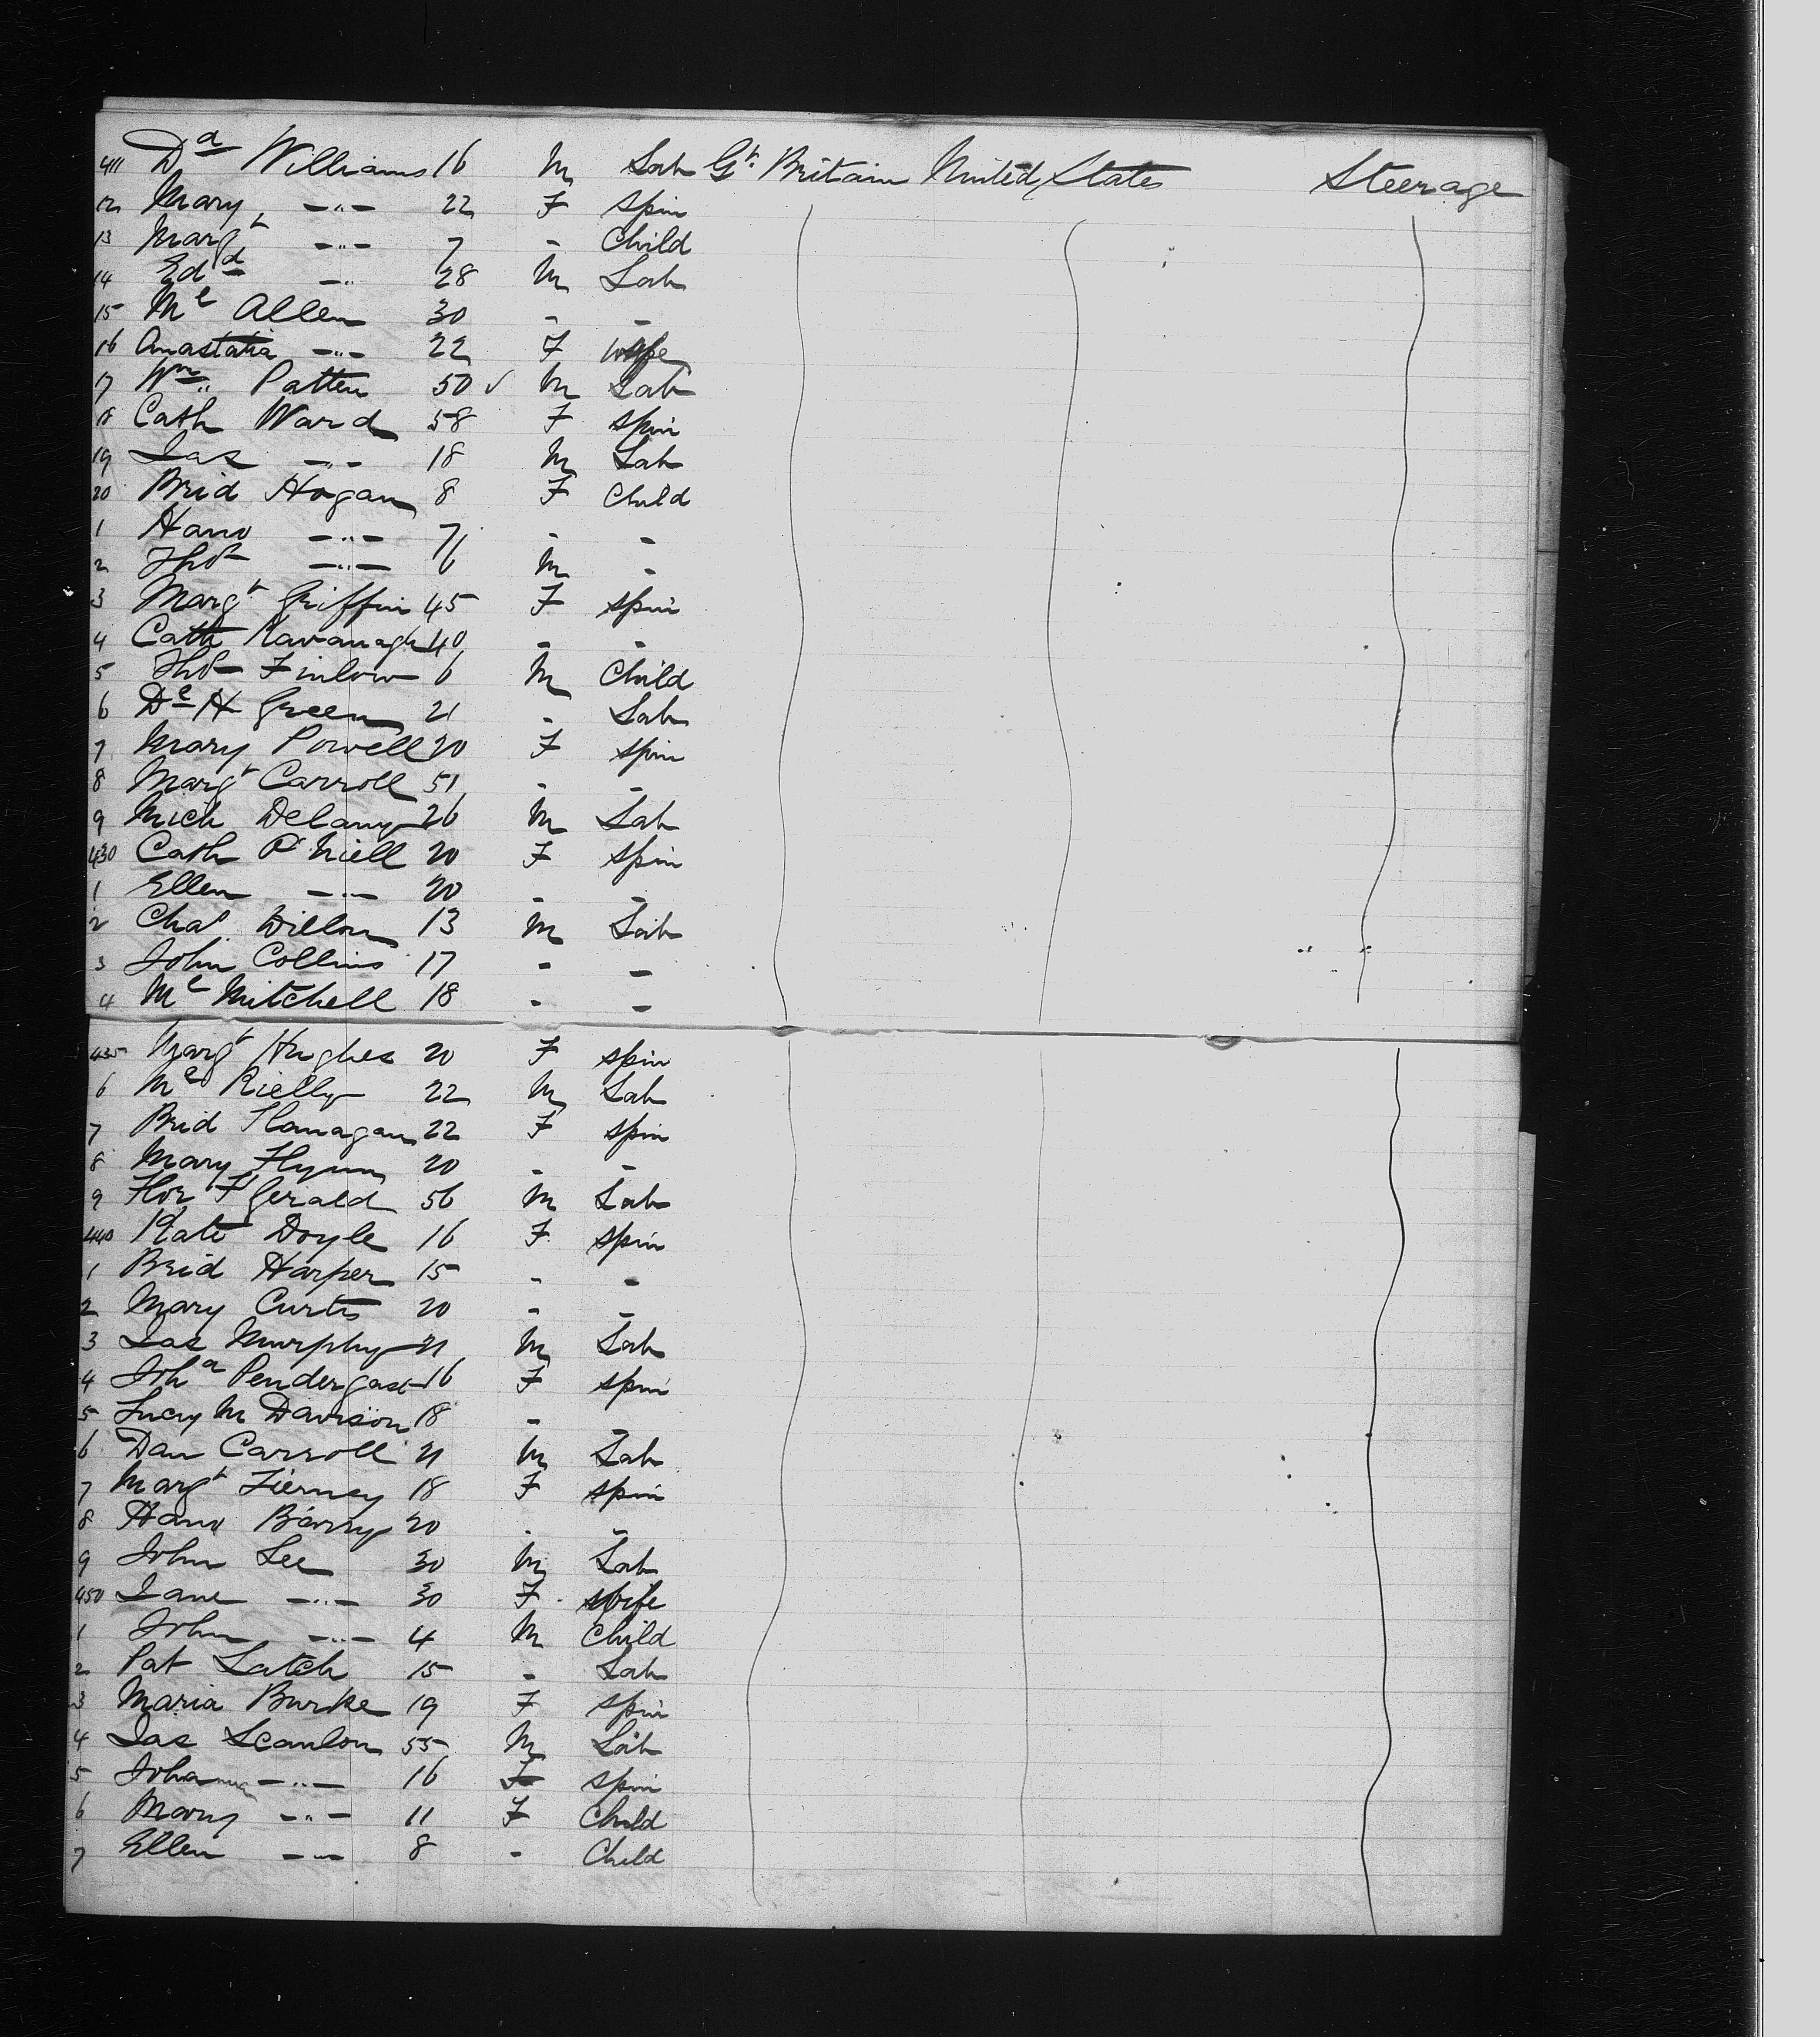 411 Dd Williams 16 M Lab Gt. Britain United States Steerage
12 Mary -"- 22 F spin
13 Margt -"- 7 - Child
14 Edd -" 28 M Lab
15 Ml Allen 30 - -
16 Anastatia -"- 22 F wife
17 Wm Patten 50 ✓ M Lab
18 Cath Ward 58 F spin
19 Jas -"- 18 M Lab
20 Brid Hogan 8 F Child
1 Hano -"- 7 - -
2 Thos -"- 6 M -
3 Margt Griffin 45 F spin
4 Cath Kavanagh 40 - -
5 Thos Finlow 6 M Child
6 H Green 21 - Lab
7 Mary Powell 20 F spin
8 Margt Carroll 51 - -
9 Mich Delany 26 M Lab
430 Cath O'Niell 20 F spin
1 Ellen -"- 20 - -
2 Chas Dillon 13 M Lab
3 John Collins 17 - -
4 Ml Mitchell 18 - -
435 Margt Hughes 20 F spin
6 Ml Rielly 22 M Lab
7 Brid Flanagan 22 F spin
8 Mary Flynn 20 - -
9 F'Gerald 56 M Lab
440 Kate Doyle 16 F spin
1 Brid Harper 15 - -
2 Mary Curtis 20 - -
3 Jas Murphy 21 M Lab
4 Joha Pendergast 16 F spin
5 Lucy M Davison 18 - -
6 Dan Carroll 21 M Lab
7 Margt Tierney 18 F spin
8 Hano Barry 20 - -
9 John Lee 30 M Lab
450 Jane -"- 30 F wife
1 John -"- 4 M Child
2 Pat Latch 15 - Lab
3 Maria Burke 19 F spin
4 Jas Scanlon 55 M Lab
5 Johanna -"- 16 F spin
6 Mary -"- 11 F Child
7 Ellen -"- 8 - Child